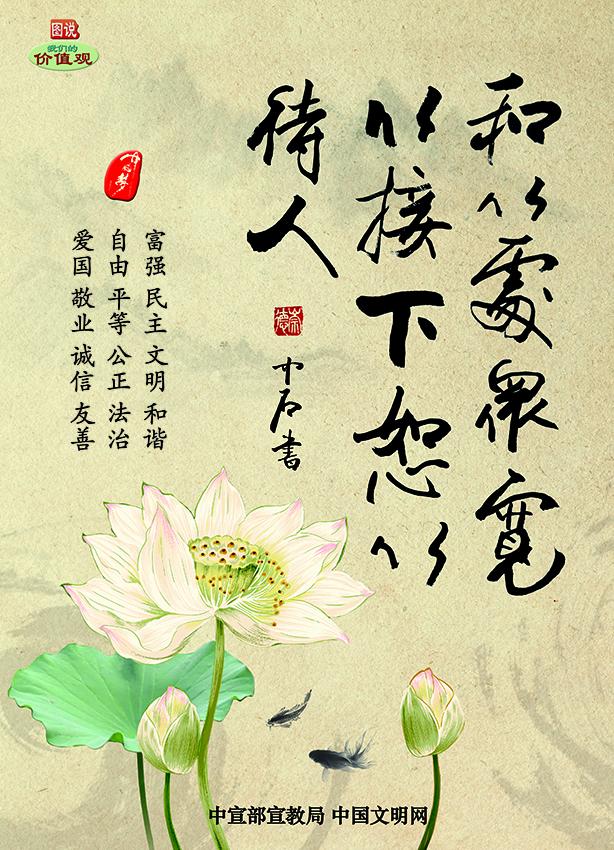 图说
我们的
价值观
和以處衆寬
以接下恕以
待人
崇德
中石書
中国梦
富强 民主 文明 和谐
自由 平等 公正 法治
爱国 敬业 诚信 友善
中宣部宣教局 中国文明网